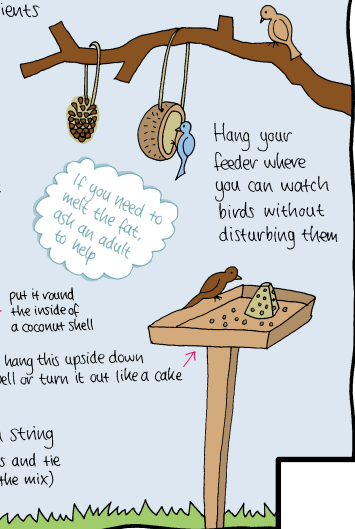 ients
Hang your
feeder where
you can watch
birds without
disturbing them
If you need to
melt the fat,
ask an adult
to help
put it round
the inside of
a coconut shell
hang this upside down
ell or turn it out like a cake
string
s and tie
the mix)